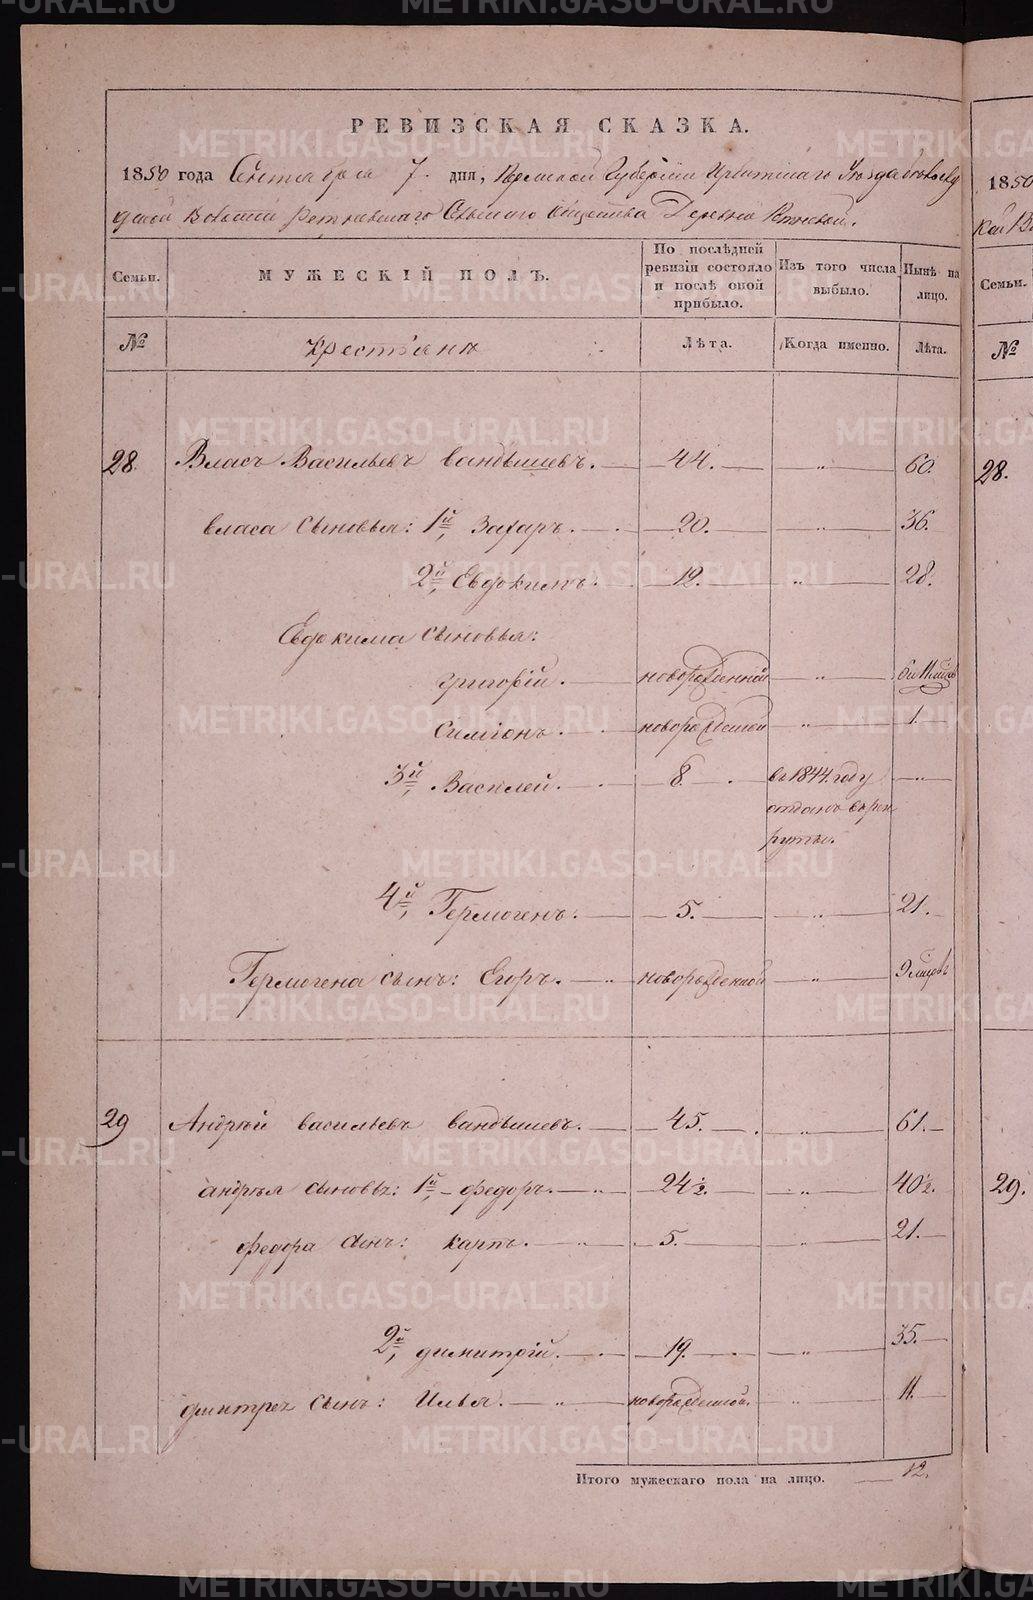 РЕВИЗСКАЯ СКАЗКА.
1850 года Сентября 7. дня, Пермской Губерніи Ирбитскаго Уезда
Волости Сельскаго общества Деревни
Семьи.
МУЖЕСКІЙ ПОЛЪ.
По послѣдней ревизіи состояло и послѣ оной прибыло.
Изъ того числа выбыло.
Нынѣ на лицо.
№
Крестьяне
Лѣта.
Когда именно.
Лѣта.
28. Власъ Васильевъ вандышевъ. 44. „ 60.
власа сыновья: 1й Захаръ. 20. „ 36.
2й Евдокимъ. 12. „ 28.
Евдокима сыновья:
григорій. новорожденной „
симіонъ. новорожденной „ 1.
3й Василей. 8. въ 1844. году „
отданъ въ рек
руты.
4й Гермогенъ. 5. „ 21.
Гермогена сынъ: Егоръ. новорожденной „ 9 мцевъ
29 Андрей васильевъ вандышевъ. 45. „ 61.
андрея сыновья: 1й федоръ. 24½. „ 40½.
федора сынъ: карпъ. 5. „ 21.
2й димитрій. 19. „ 35.
дмитрея сынъ: Илья. новорожденной. „ 11.
Итого мужескаго пола на лицо. 12.
1850
Семьи.
№
28.
29.
METRIKI.GASO-URAL.RU